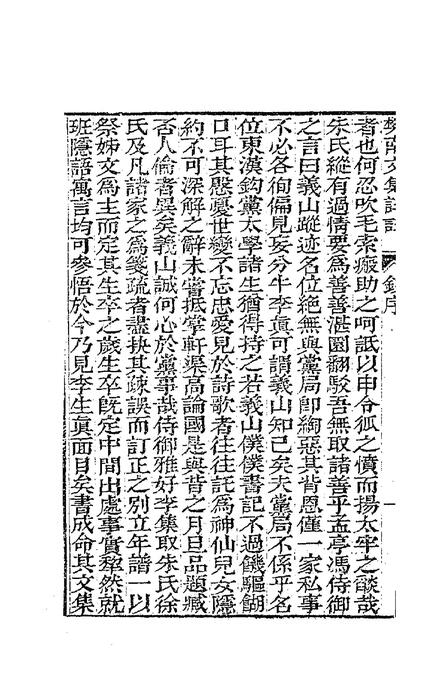 樊南文集詳註　錢序　一
者也何忍吹毛索瘢助之呵詆以申令狐之憤而揚太牢之燄哉
朱氏縱有過情要為善善湛園翻駁吾無取諸善乎孟亭馮侍御
之言曰義山蹤迹名位絕無與黨局即綯惡其背恩僅一家私事
不必各徇偏見妄分牛李真可謂義山知己矣夫黨局不係乎名
位東漢鈎黨太學諸生猶得持之若義山僕僕書記不過饑驅餬
口耳其慇憂世變不忘忠愛見於詩歌者往往託為神仙兒女隱
約不可深解之辭未嘗抵掌軒渠高論國是與昔之月旦品題臧
否人倫者異矣義山誠何心於黨事哉侍御雅好李集取朱氏徐
氏及凡諸家之為箋疏者盡抉其疎誤而訂正之別立年譜一以
祭姊文為主而定其生卒之歲生卒旣定中間出處事實犂然就
班隱語寓言均可參悟於今乃見李生真面目矣書成命其文集